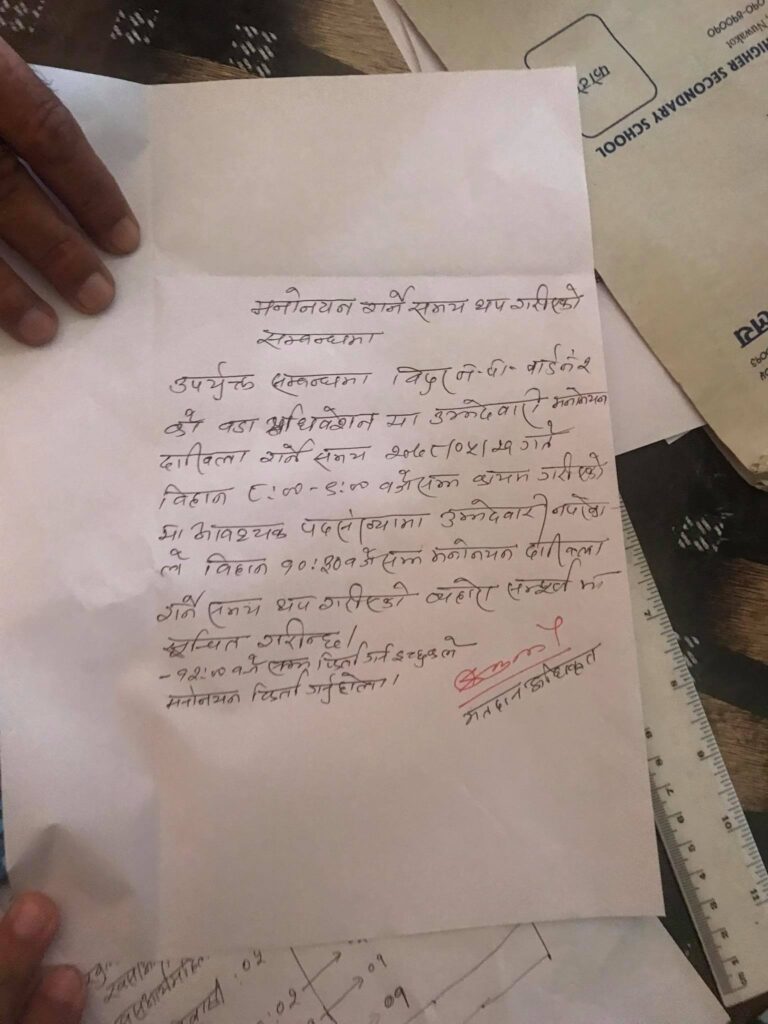 मनोनयन गर्ने समय थप गरीएको
सम्बन्धमा
उपर्युक्त सम्बन्धमा विदुर न.पा. वार्ड नं २
को वडा अधिवेशन मा उम्मेदवारी मनोनयन
दाखिला गर्ने समय २०७८/०५/२७ गते
विहान ८:०० - ९:०० बजेसम्म कायम गरीएको
मा आवश्यक पद संख्यामा उम्मेदवारी नपरेका
ले विहान १०:३० बजे सम्म मनोनयन दाखिला
गर्ने समय थप गरीएको व्यहोरा सम्पूर्ण मा
सूचित गरीन्छ।
- १२:०० बजे सम्म फिर्ता गर्न इच्छुकले
मनोनयन फिर्ता गर्नुहोला।
मतदान अधिकृत
HIGHER SECONDARY SCHOOL
, Nuwakot
090-690090
: ०२
०१
: ०२
०१